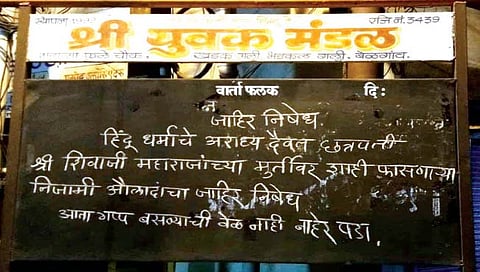 स्थापना १९९२ रजि नं. 3439
श्री युवक मंडल
फुले चौक, खडक गल्ली भडकल गल्ली, बेळगांव.
वार्ता फलक दि:
जाहिर निषेध.
हिंदू धर्माचे अराध्य दैवत छत्रपती
श्री शिवाजी महाराजांच्या मुर्तीवर शाही फासणाऱ्या
निजामी औलादांचा जाहिर निषेध
आता गप्प बसण्याची वेळ नाही बाहेर पडा.